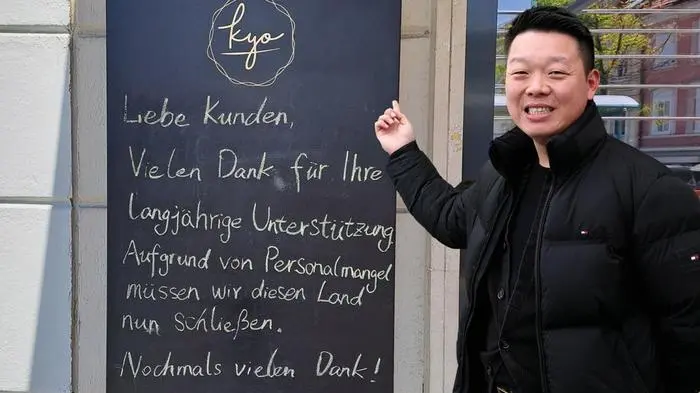 kyo
Liebe Kunden,
Vielen Dank für Ihre
langjährige Unterstützung
Aufgrund von Personalmangel
müssen wir diesen Land
nun schließen.
Nochmals vielen Dank!